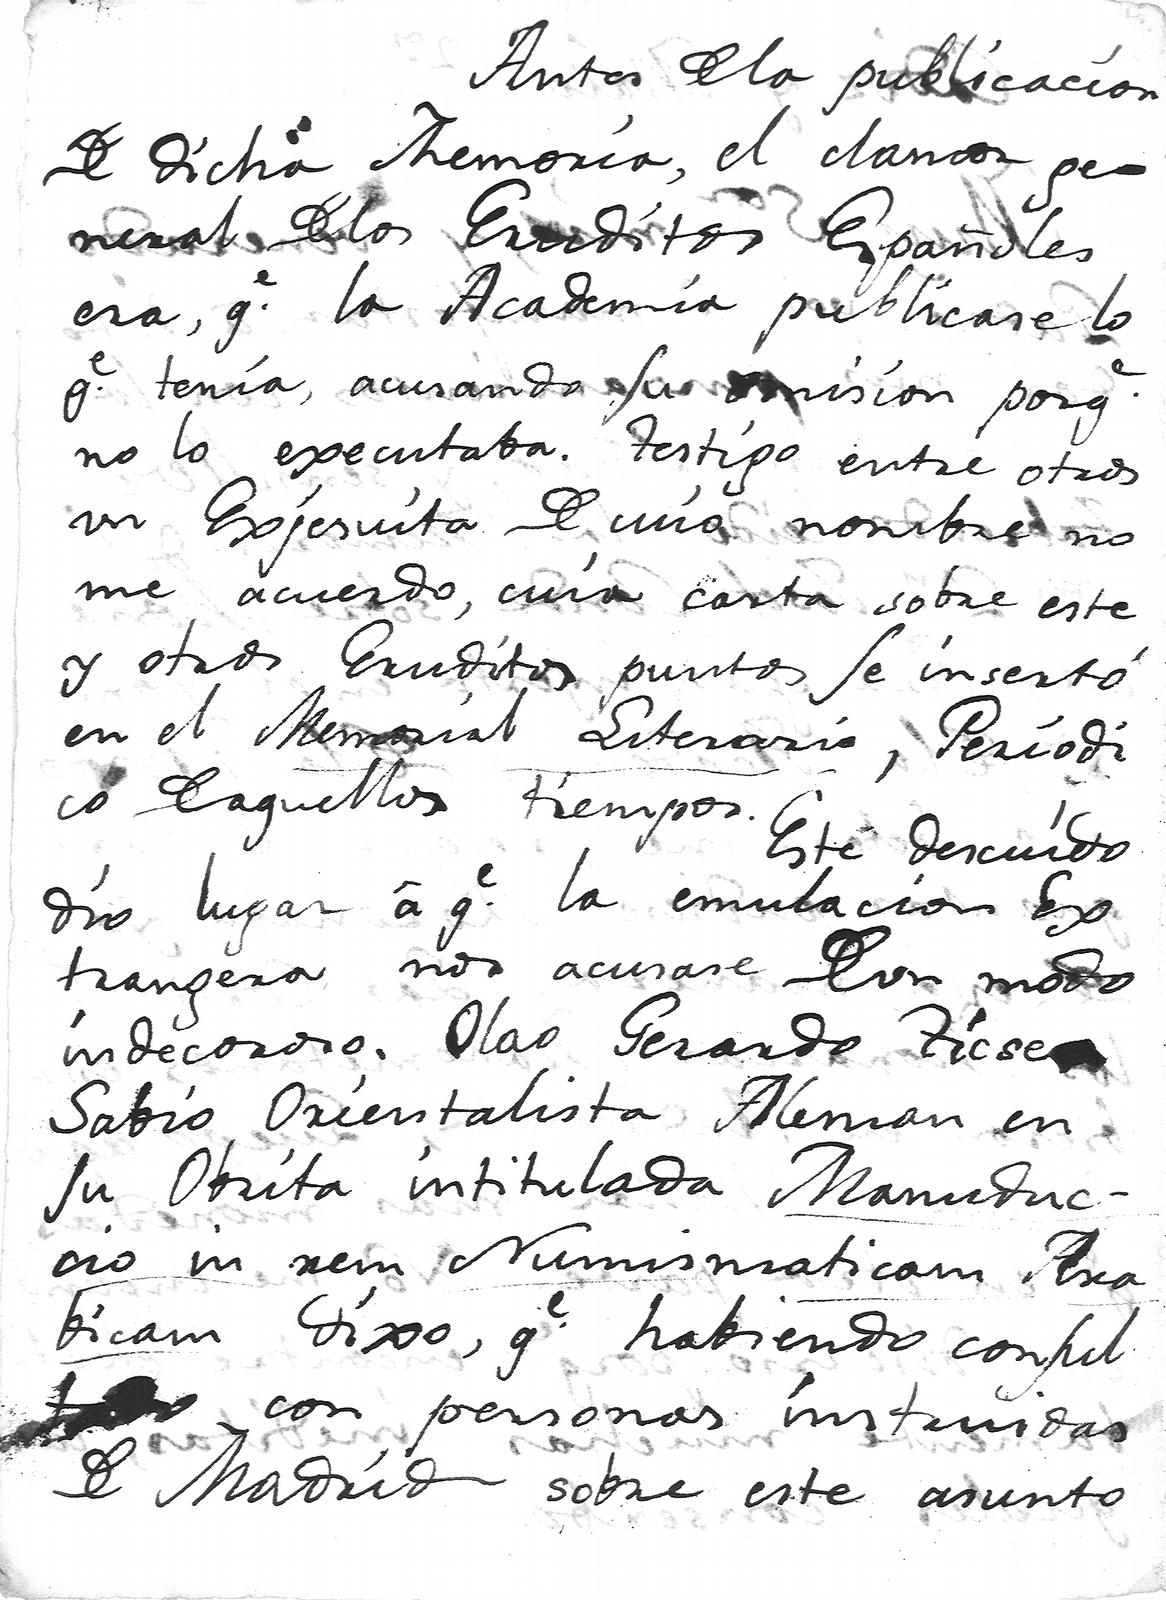 Antes Dla publicacion
D dicha Memoria, el clamor ge-
neral Dlos Eruditos Españoles
era, q.e la Academia publicase lo
q.e tenía, acusando su omision porq.e
no lo executaba. Testigo entre otros
un Exjesuíta D cuío nombre no
me acuerdo, cuía carta sobre este
y otros Eruditos puntos se insertó
en el Memorial Literario, Periodi
co Daquellos tiempos.
Este descuído
dío lugar â q.e la emulacion Ex
trangera nos acusase Dun modo
indecoroso. Olao Gerardo Ticsen
Sabio Orientalista Aleman en
su Obrita intitulada Manuduc-
cio in rem Numismaticam Ara
bicam dixo, q.e habiendo consul
tado con personas instruidas
D Madrid sobre este asunto